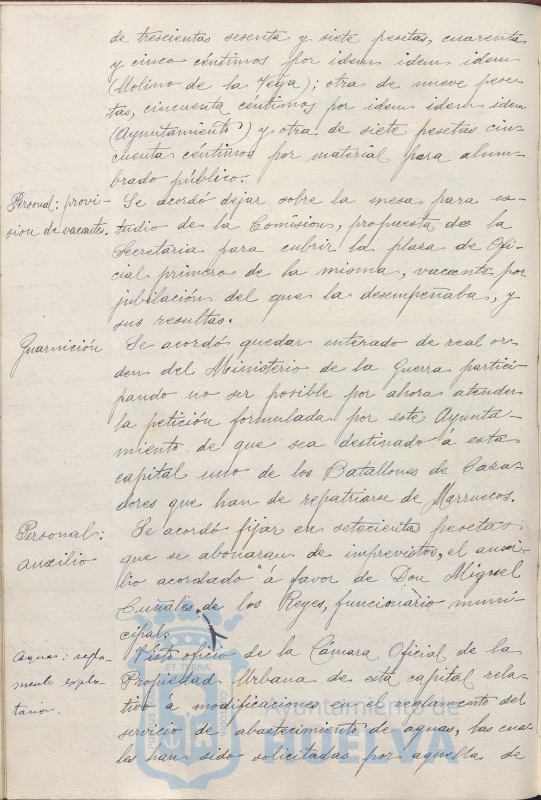 de trescientas sesenta y siete pesetas, cuarenta
y cinco céntimos por idem idem idem
(Molino de la Vega); otra de nueve pese-
tas, cincuenta céntimos por idem idem idem
(Ayuntamiento) y otra de siete pesetas cin-
cuenta céntimos por material para alum-
brado público.
Personal: provi-
sion de vacantes.
Se acordó dejar sobre la mesa para es-
tudio de la Comision, propuesta de la
Secretaria para cubrir la plaza de Ofi-
cial primero de la misma, vacante por
jubilación del que la desempeñaba, y
sus resultas.
Guarnición
Se acordó quedar enterado de real or-
den del Ministerio de la Guerra partici-
pando no ser posible por ahora atender
la petición formulada por este Ayunta-
miento de que sea destinado á esta
capital uno de los Batallones de Caza-
dores que han de repatriarse de Marruecos.
Personal:
auxilio
Se acordó fijar en setecienta pesetas
que se abonaran de imprevistos, el auxi-
lio acordado á favor de Don Miguel
de los Reyes, funcionario muni-
cipal.
Aguas: regla-
mento explo-
tacion.
Visto oficio de la Cámara Oficial de la
Propiedad Urbana de esta capital rela-
tivo á modificaciones en el reglamento del
servicio de abastecimiento de aguas, las cua-
les han sido solicitadas por aquella de
Ayuntamiento de
HUELVA